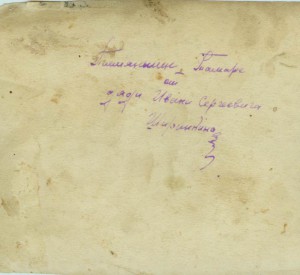 Племянице Тамаре
от
дяди Ивана Сергеевича